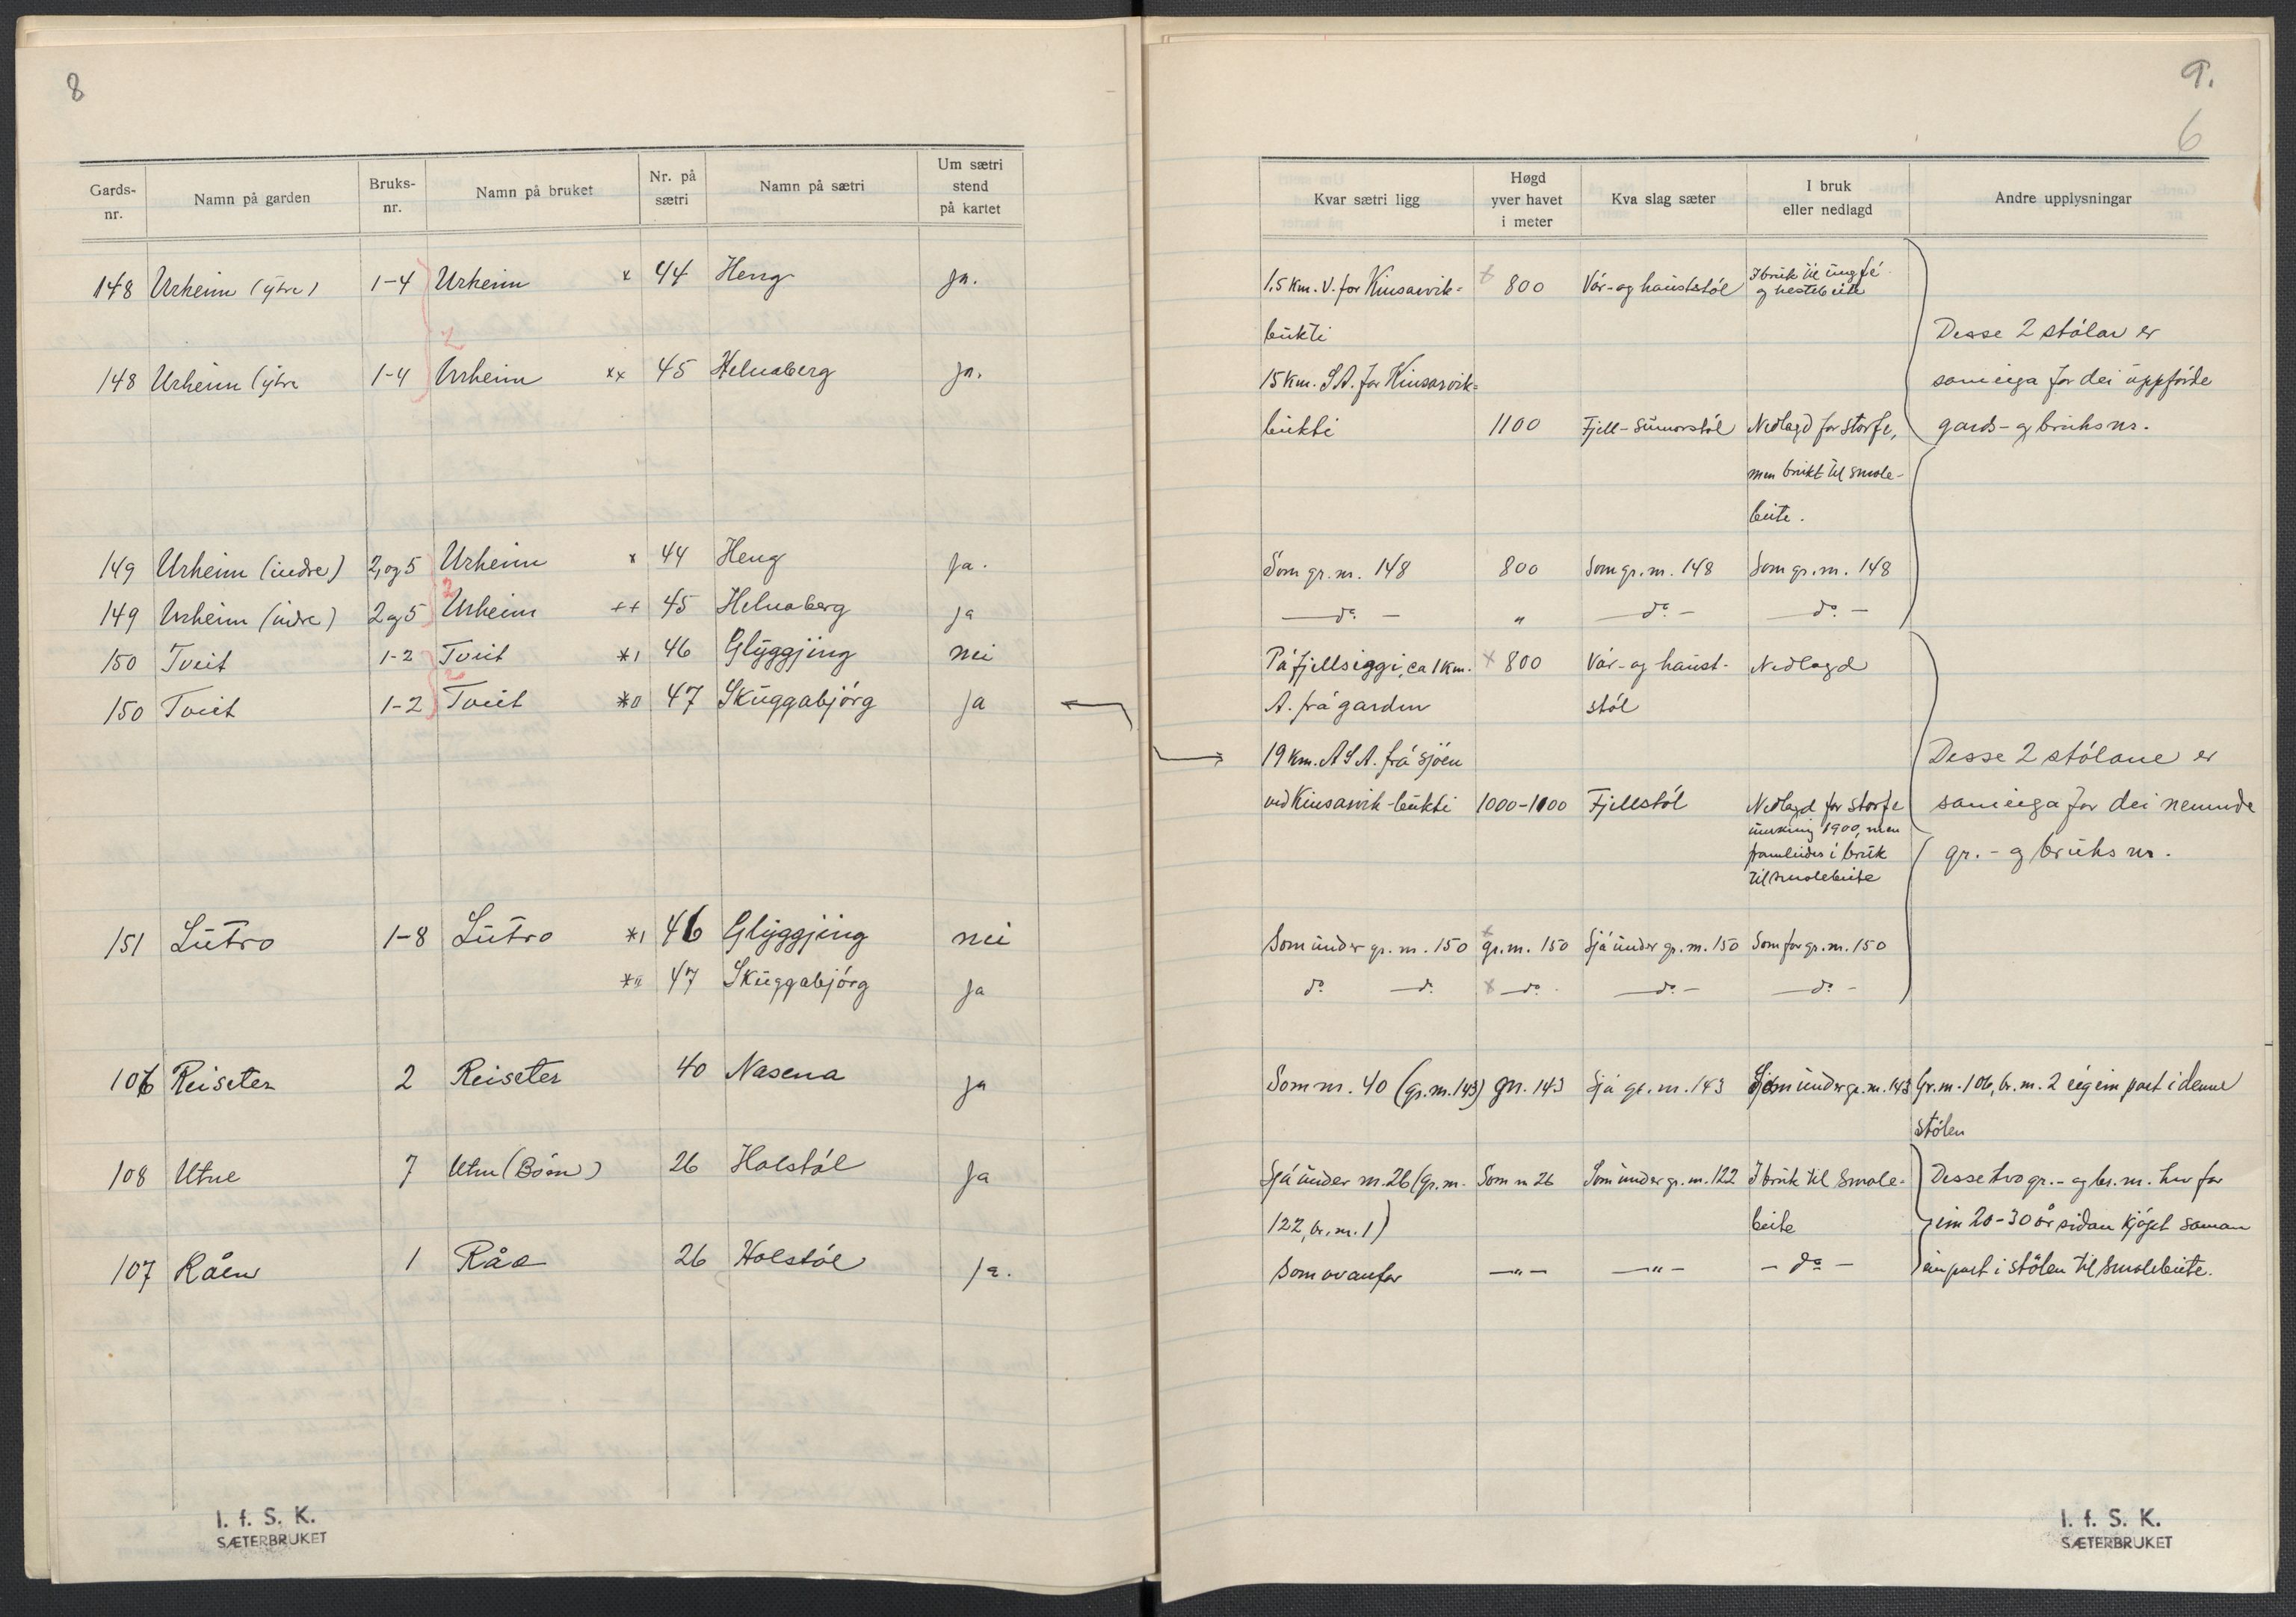 8
Gards-nr. Namn på garden Bruks-nr. Namn på bruket Nr. på sætri Namn på sætri Um sætri stend på kartet
148 Urheim (ytre) 1-4 Urheim x 44 Heng ja.
2
148 Urheim (ytre 1-4 Urheim xx 45 Helnaberg ja.
149 Urheim (indre) 2, og 5 Urheim x 44 Heng ja.
2
149 Urheim (indre) 2 og 5 Urheim ++ 45 Helnaberg ja
150 Tveit 1-2 Tveit *1 46 Glyggjing nei
2
150 Tveit 1-2 Tveit *11 47 Skuggabjørg ja
151 Lutro 1-8 Lutro *1 46 Glyggjing nei
*11 47 Skuggabjørg ja
106 Reiseter 2 Reiseter 40 Nasena ja
108 Utne 7 Utne (Bøen) 26 Holstøl ja
107 Råen 1 Råa 26 Holstøl ja.
I. f. S. K.
SÆTERBRUKET
9.
6
Kvar sætri ligg Høgd yver havet i meter Kva slag sæter I bruk eller nedlagd Andre upplysningar
1,5 km. V. for Kinsarvik= x 800 Vår- og hauststøl I bruk til ungfé
og hestebeite
bukti Desse 2 stølar er
15 km. SA. for Kinsarvik= sameiga for dei uppførde
bukti 1100 Fjell-sumorstøl Nedlagd for storfe, gards- og bruksnr.
men brukt til smale-
beite.
Som gr. nr. 148 800 Som gr. nr. 148 Som gr. nr. 148
— do — " — do — — do —
På fjellseggi, ca 1 km. x 800 Vår- og haust- Nedlagd
A. frå garden støl
19 km. ASA. frå sjøen Desse 2 stølane er
ved Kinsarvik-bukti 1000-1100 Fjellstøl Nedlagd for storfe sameiga for dei nemnde
umkring 1900, men
framleides i bruk gr.- og bruks nr.
til smalebeite
Som under gr. nr. 150 x gr. nr. 150 Sjå under gr. nr. 150 Som for gr. nr. 150
do — do x — do — — do — — do —
Som nr. 40 (gr. nr. 143) gr. 143 Sjå gr. nr. 143 Som under gr. nr. 143 Gr. nr. 106, br. nr. 2 eig ein part i denne
stølen
Sjå under nr. 26 (gr. nr. Som nr 26 Som under gr. nr. 122 I bruk til smale- Desse tvo gr.- og br. nr. hev for
122, br. nr. 1) beite ein 20-30 år sidan kjøpt saman
Som ovanfor — " — — " — — do — ein part i stølen til smalebeite.
I. f. S. K.
SÆTERBRUKET